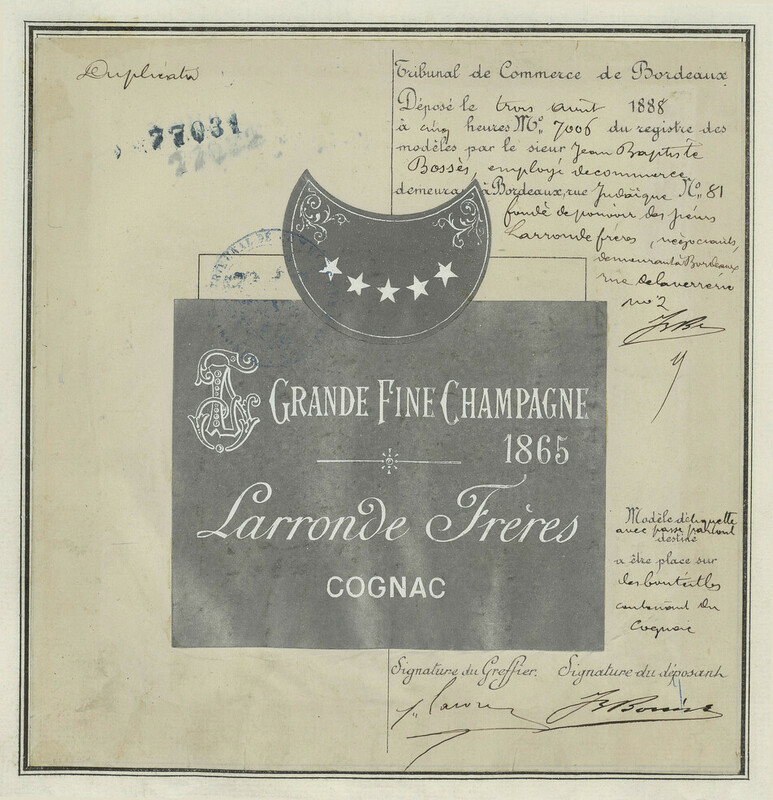 Duplicata
77031
Tribunal de Commerce de Bordeaux
Déposé le trois août 1888
à cinq heures No. 7006 du registre des
modèles par le sieur Jean Baptiste
Bossès, employé de commerce
demeurant à Bordeaux, rue Judaïque No. 81
fondé de pouvoir des sieurs
Larronde frères, négociants,
demeurant à Bordeaux
rue de la verrerie
no 2
GRANDE FINE CHAMPAGNE
1865
Larronde Frères
COGNAC
Modèle d'étiquette
avec passe partout
destiné
a être place sur
des bouteilles
contenant du
Cognac
Signature du Greffier. Signature du déposant